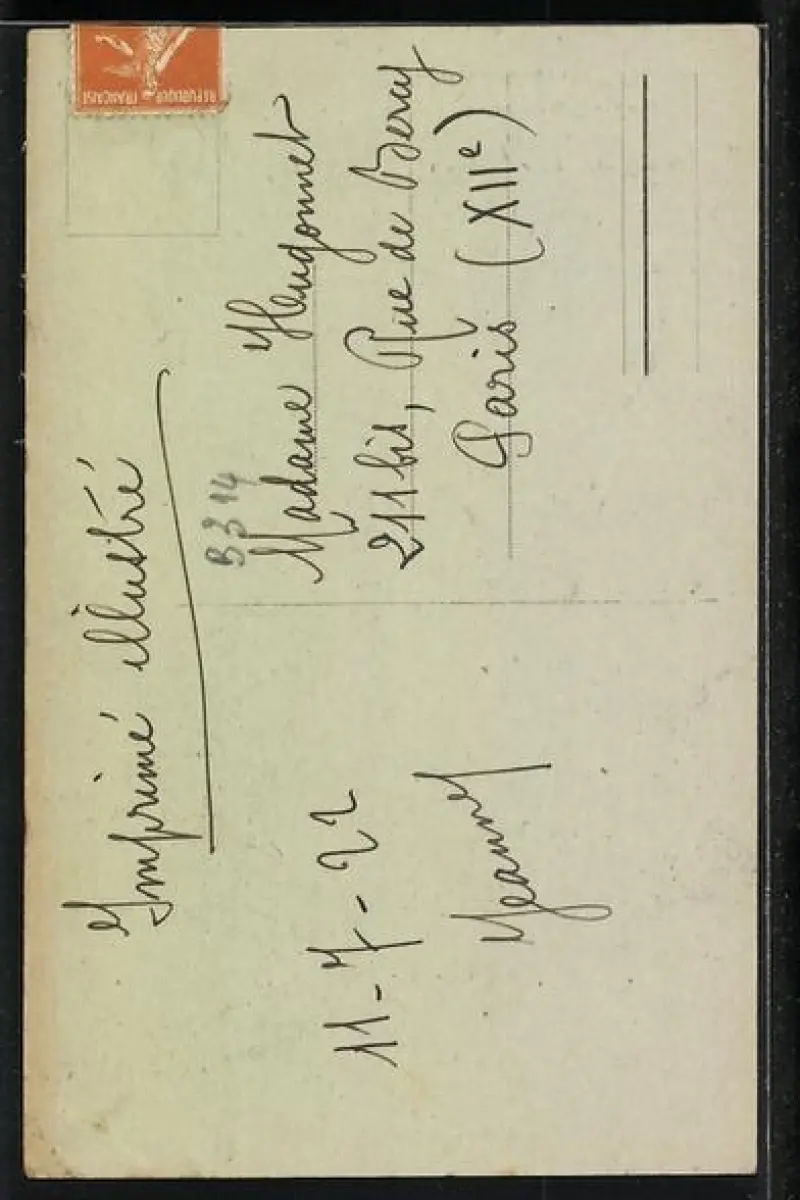 Imprimé illustré
B314
Madame Hugonnet
211 bis, Rue de Bercy
Paris (XIIe)
11-7-22
Jeanne
REPUBLIQUE FRANÇAISE